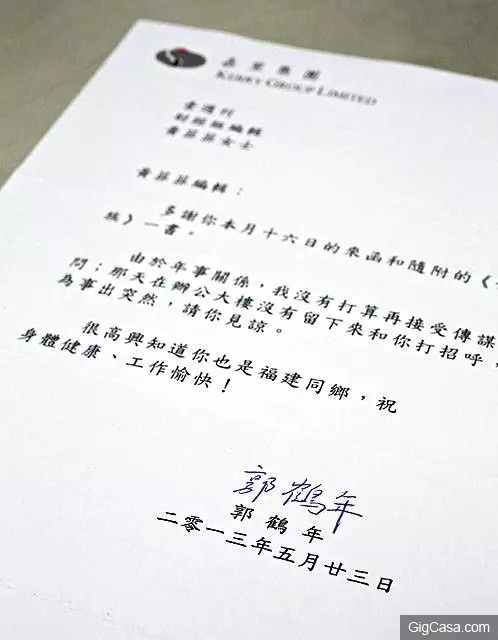 嘉里集團
KERRY GROUP LIMITED
壹週刊
財經組編輯
黃菲菲女士
黃菲菲編輯：
多謝你本月十六日的來函和隨附的《
族》一書。
由於年事關係，我沒有打算再接受傳媒
問；那天在辦公大樓沒有留下來和你打招呼，
為事出突然，請你見諒。
很高興知道你也是福建同鄉，祝
身體健康、工作愉快！
郭鶴年
郭鶴年
二零一三年五月廿三日
GigCasa.com